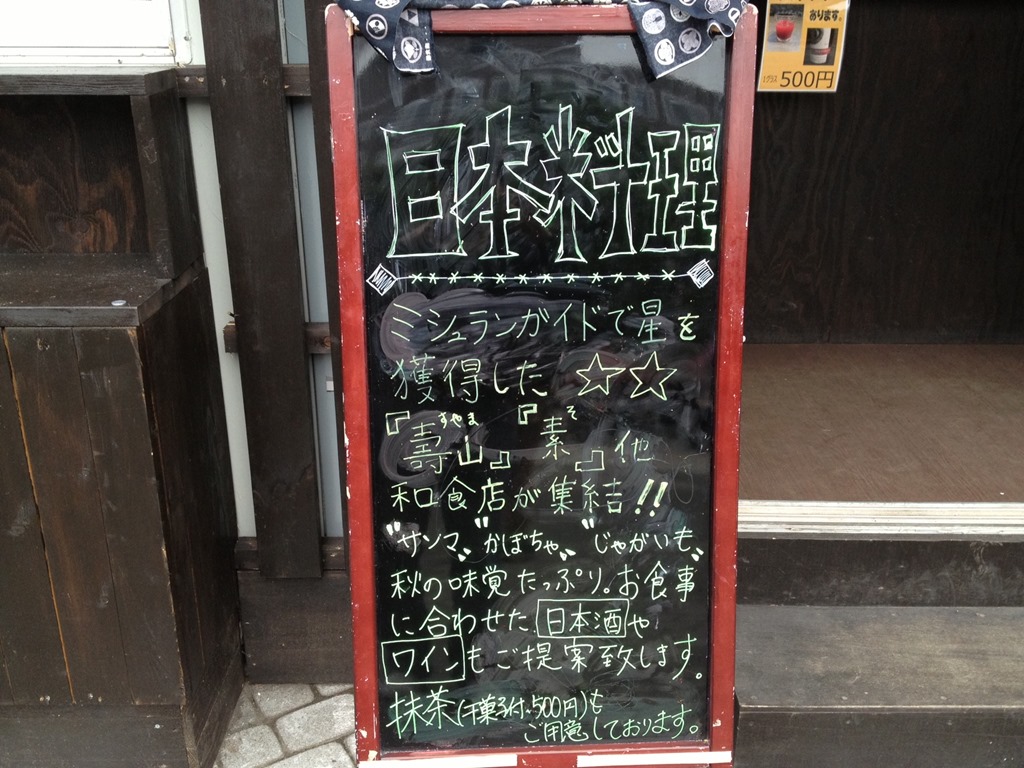 あります。
1グラス 500円
日本料理
ミシュランガイドで星を
獲得した ☆☆
『壽山』『素』他
すやま そ
和食店が集結!!
"サンマ" "かぼちゃ" "じゃがいも"
秋の味覚たっぷり。お食事
に合わせた 日本酒や
ワインもご提案致します。
抹茶(干菓子付・500円)も
ご用意しております。